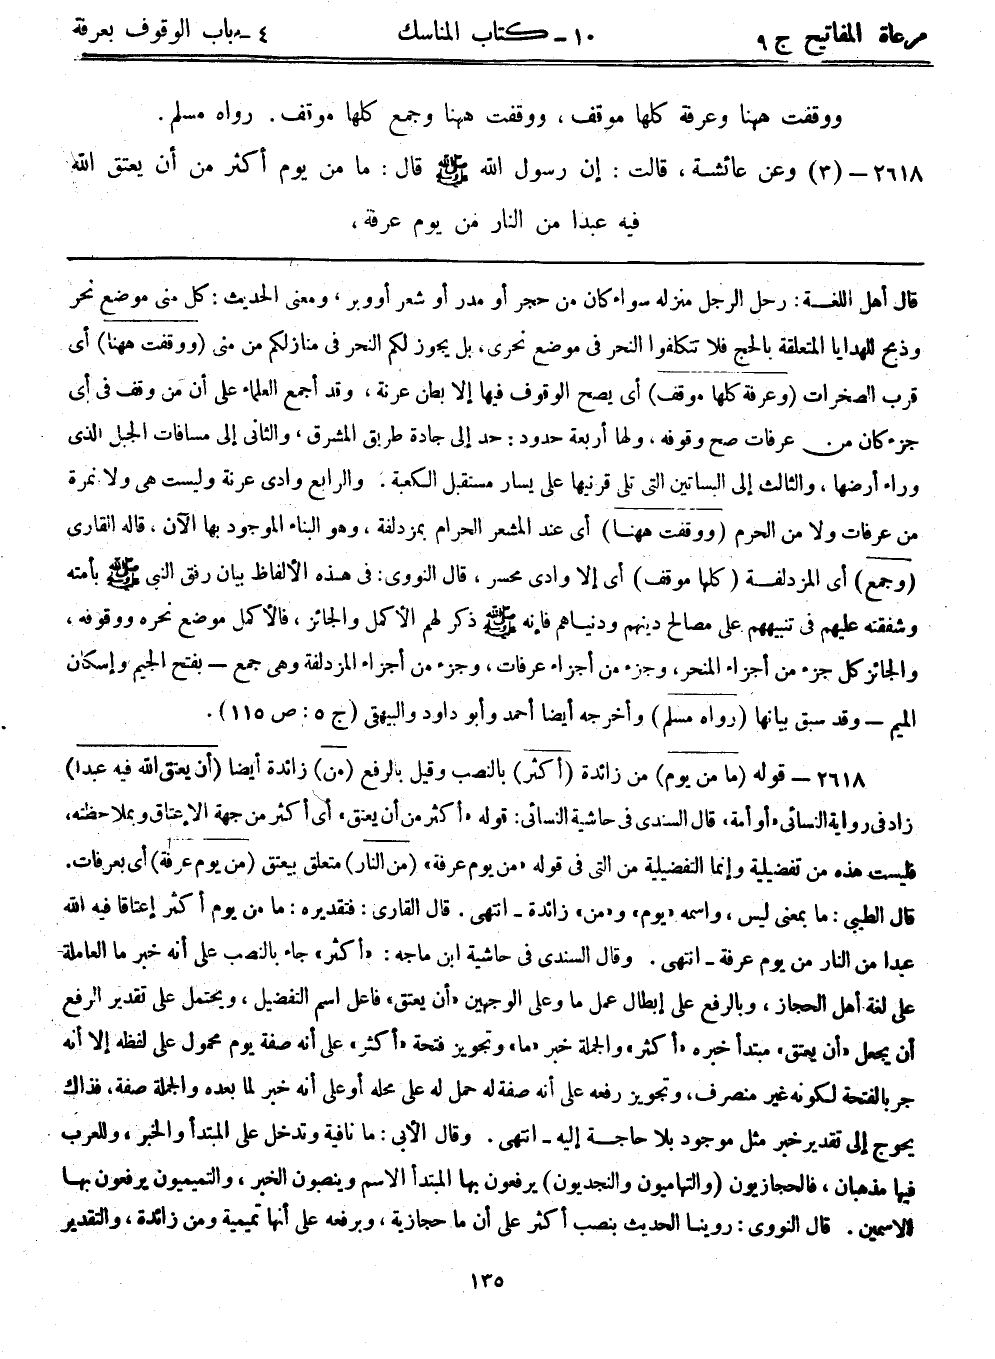 مرعاة المفاتيح ج ٩ ١٠ - كتاب المناسك ٤ - باب الوقوف بعرفة
ووقفت ههنا وعرفة كلها موقف ، ووقفت ههنا وجمع كلها موقف . رواه مسلم .
٢٦١٨ – (٣) وعن عائشة ، قالت : إن رسول الله ﷺ قال : ما من يوم أكثر من أن يعتق الله
فيه عبدا من النار من يوم عرفة ،
قال أهل اللغة : رحل الرجل منزله سواء كان من حجر أو مدر أو شعر أو وبر ، ومعنى الحديث : كل منى موضع نحر
وذبح للهدايا المتعلقة بالحج فلا تتكلفوا النحر فى موضع نحرى ، بل يجوز لكم النحر فى منازلكم من منى (ووقفت ههنا) أى
قرب الصخرات (وعرفة كلها موقف) أى يصح الوقوف فيها إلا بطن عرنة ، وقد أجمع العلماء على أن من وقف فى أى
جزء كان من عرفات صح وقوفه ، ولها أربعة حدود : حد إلى جادة طريق المشرق ، والثانى إلى مسافات الجبل الذى
وراء أرضها ، والثالث إلى البساتين التى تلى قرنيها على يسار مستقبل الكعبة . والرابع وادى عرنة وليست هى ولا نمرة
من عرفات ولا من الحرم (ووقفت ههنا) أى عند المشعر الحرام بمزدلفة ، وهو البناء الموجود بها الآن ، قاله القارى
(وجمع) أى المزدلفة (كلها موقف) أى إلا وادى محسر ، قال النووى : فى هذه الألفاظ بيان رفق النبى ﷺ بأمته
وشفقته عليهم فى تنبيههم على مصالح دينهم ودنياهم فإنه ﷺ ذكر لهم الأكمل والجائز ، فالأكمل موضع نحره ووقوفه ،
والجائز كل جزء من أجزاء المنحر ، وجزء من أجزاء عرفات ، وجزء من أجزاء المزدلفة وهى جمع – بفتح الجيم وإسكان
الميم – وقد سبق بيانها (رواه مسلم) وأخرجه أيضا أحمد وأبو داود والبيهقى (ج ٥ : ص ١١٥) .
٢٦١٨ – قوله (ما من يوم) من زائدة (أكثر) بالنصب وقيل بالرفع (من) زائدة أيضا (أن يعتق الله فيه عبدا)
زاد فى رواية النسائى «أو أمة» قال السندى فى حاشية النسائى : قوله «أكثر من أن يعتق» أى أكثر من جهة الإعتاق وبملاحظته ،
فليست هذه من تفضيلية وإنما التفضيلية من التى فى قوله «من يوم عرفة» (من النار) متعلق بيعتق (من يوم عرفة) أى بعرفات .
قال الطيبى : ما بمعنى ليس ، واسمه «يوم» و«من» زائدة - انتهى . قال القارى : فتقديره : ما من يوم أكثر إعتاقا فيه الله
عبدا من النار من يوم عرفة - انتهى . وقال السندى فى حاشية ابن ماجه : «أكثر» جاء بالنصب على أنه خبر ما العاملة
على لغة أهل الحجاز ، وبالرفع على إبطال عمل ما وعلى الوجهين «أن يعتق» فاعل اسم التفضيل ، ويحتمل على تقدير الرفع
أن يجعل «أن يعتق» مبتدأ خبره «أكثر» والجملة خبر «ما» وتجويز فتحة «أكثر» على أنه صفة يوم محمول على لفظه إلا أنه
جر بالفتحة لكونه غير منصرف ، وتجويز رفعه على أنه صفة له حمل له على محله أو على أنه خبر لما بعده والجملة صفة ، فذاك
يحوج إلى تقدير خبر مثل موجود بلا حاجة إليه - انتهى . وقال الأبى : ما نافية وتدخل على المبتدأ والخبر ، وللعرب
فيها مذهبان ، فالحجازيون (والتهاميون والنجديون) يرفعون بها المبتدأ الاسم وينصبون الخبر ، والتميميون يرفعون بها
الاسمين . قال النووى : روينا الحديث بنصب أكثر على أن ما حجازية ، وبرفعه على أنها تميمية ومن زائدة ، والتقدير
١٣٥